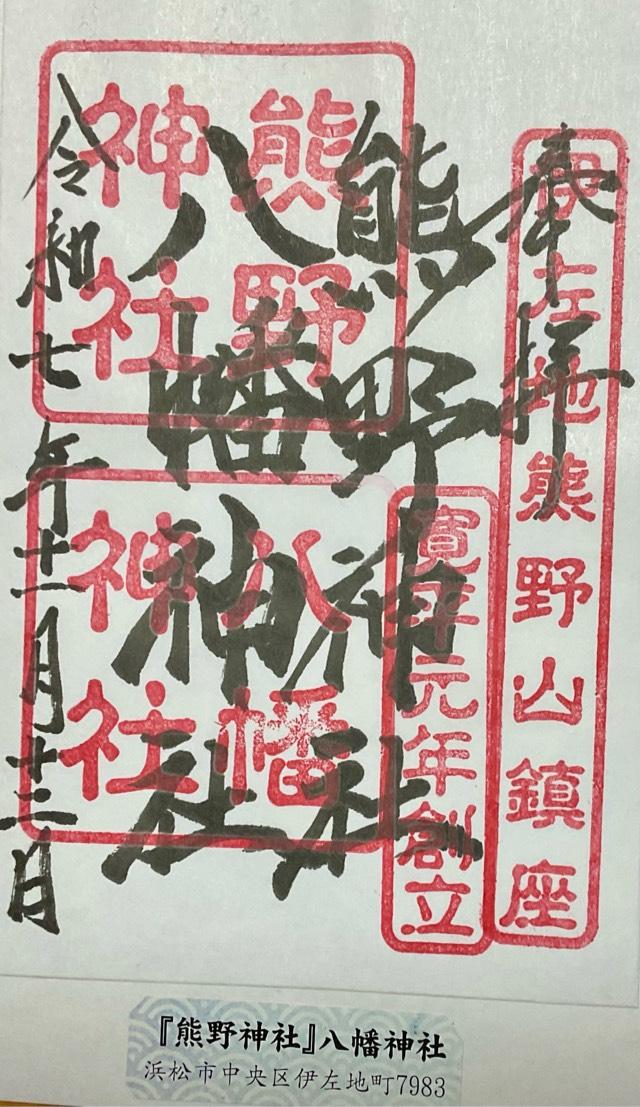 奉拝
伊左地熊野山鎮座
熊野神社
寛平元年創立
八幡神社
熊野神社
八幡神社
令和七年十一月十三日
『熊野神社』八幡神社
浜松市中央区伊左地町7983